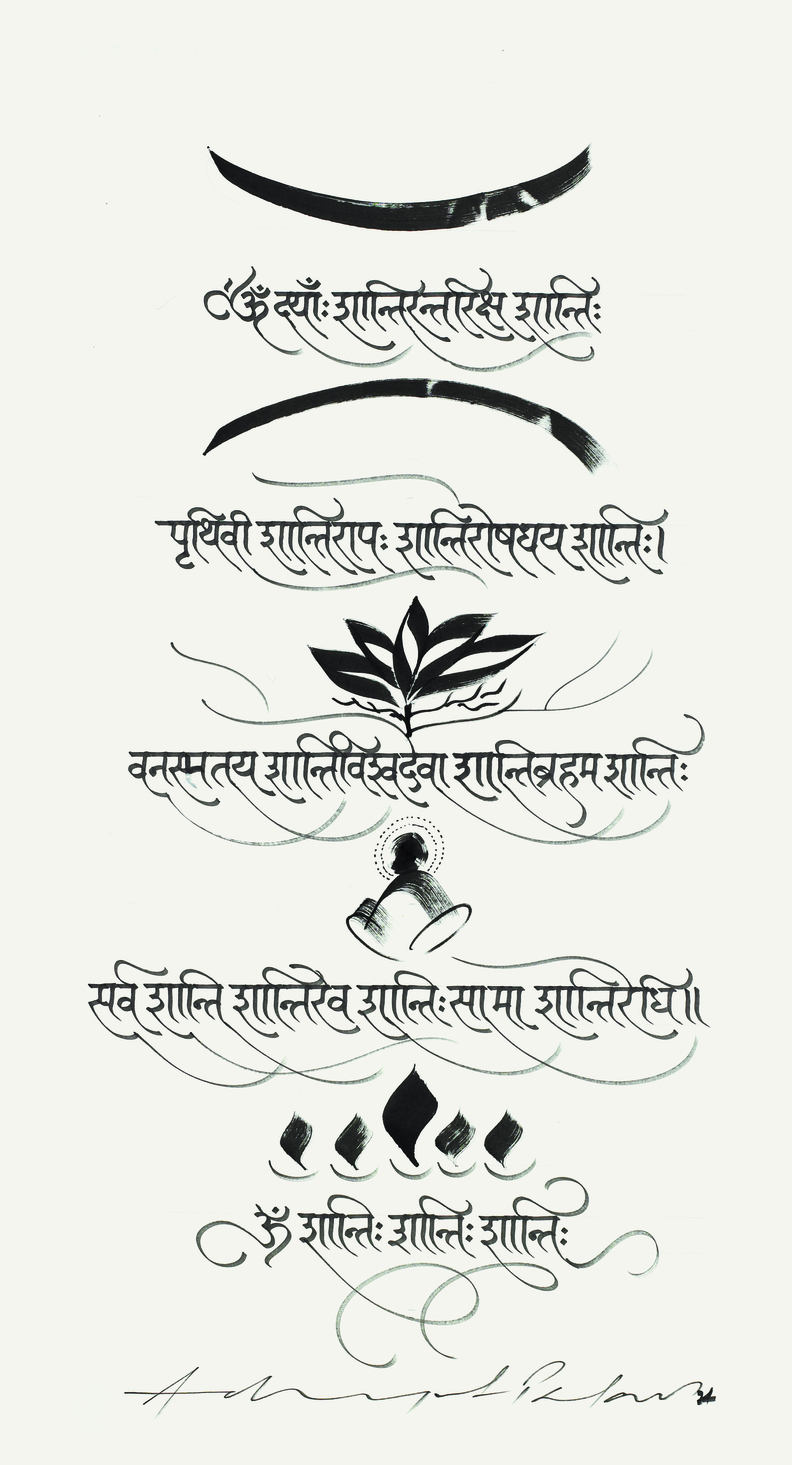 ॐ दयाँः शान्तिरन्तरिक्ष शान्तिः
पृथिवी शान्तिरापः शान्तिरोषधय शान्तिः।
वनस्पतय शान्तिर्विश्वेदेवा शान्तिब्रह्म शान्तिः
सर्व शान्ति शान्तिरेव शान्तिः सा मा शान्तिरेधि॥
ॐ शान्तिः शान्तिः शान्तिः